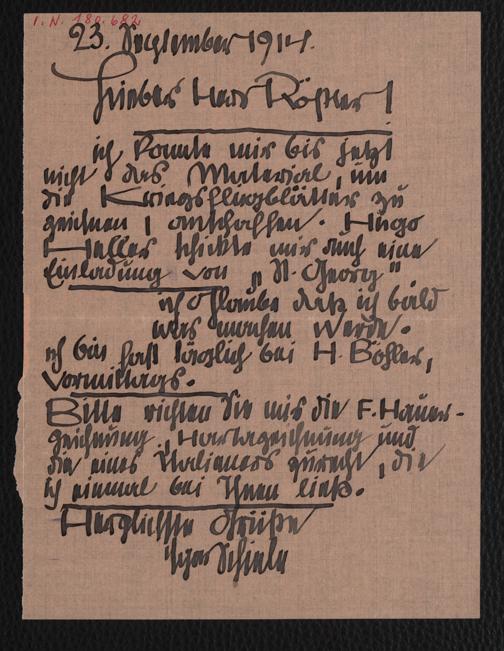 I.N. 180.682
23. September 1914.
Lieber Herr Rößler!
ich konnte mir bis jetzt
nicht das Material, um
die Kriegsflugblätter zu
zeichnen, anschaffen. Hugo
Heller schickte mir auch eine
Einladung von „St. Georg“.
ich glaube daß ich bald
was machen werde.
ich bin fast täglich bei H. Böhler,
Vormittags.
Bitte richten Sie mir die F. Hauer-
zeichnung, Hartazeichnung und
die eines Italieners zurecht, die
ich einmal bei Ihnen ließ.
Herzlichste Grüße
Egon Schiele